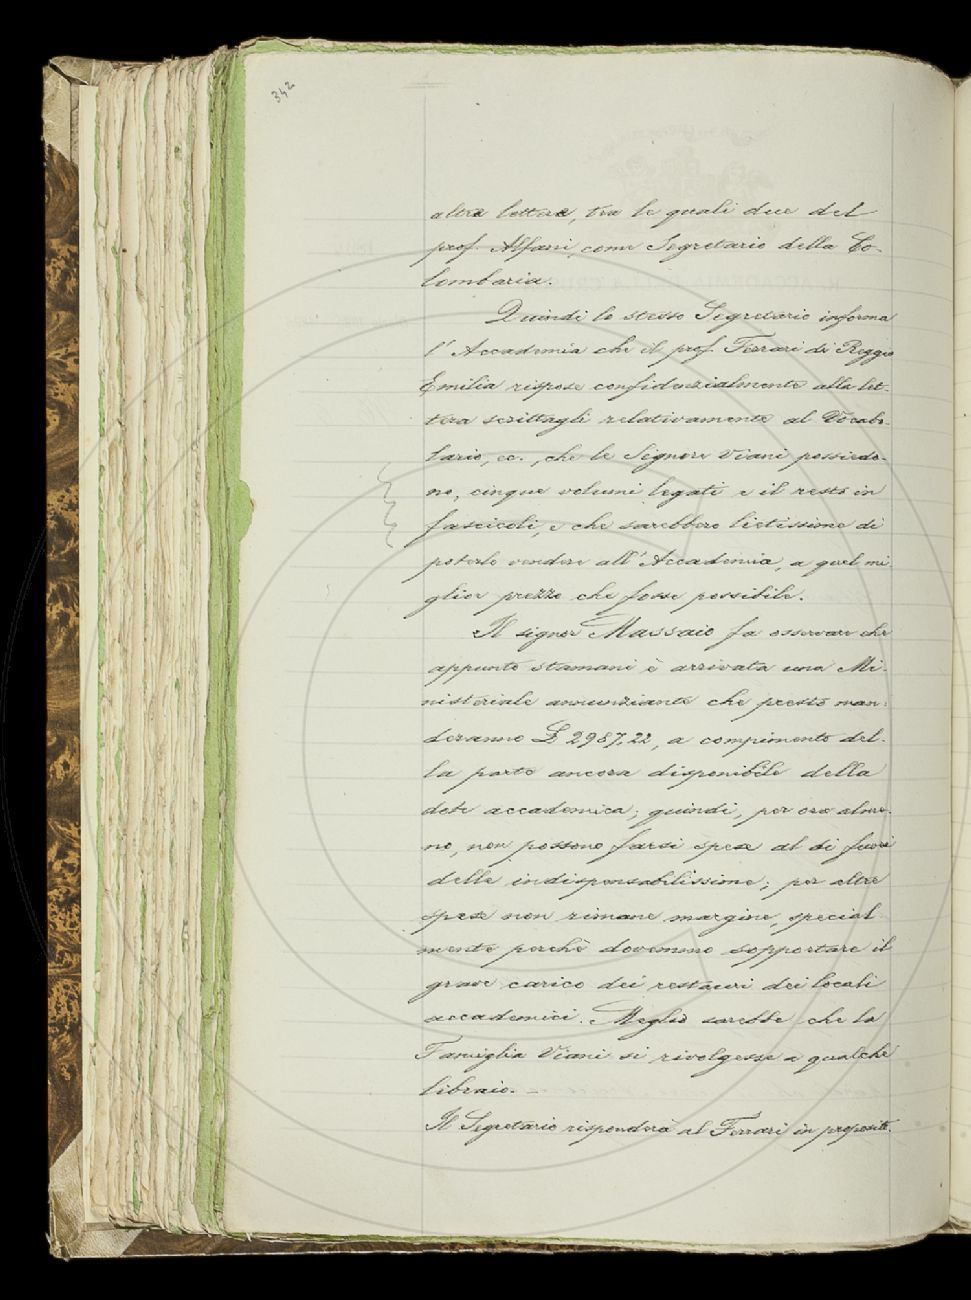 342
altre lettere, tra le quali due del
prof. Alfani, come Segretario della Co-
lombaria.
Quindi lo stesso Segretario informa
l'Accademia che il prof. Ferrari di Reggio
Emilia rispose confidenzialmente alla let-
tera scrittagli relativamente al Vocabo-
lario, ec., che le Signore Viani possiedo-
no, cinque volumi legati e il resto in
fascicoli, e che sarebbero lietissime di
poterlo vendere all'Accademia, a quel mi
glior prezzo che fosse possibile.
Il signor Massaio fa osservare che
appunto stamani è arrivata una Mi-
nisteriale annunziante che presto man-
deranno £ 2987,22, a compimento del-
la parte ancora disponibile della
dote accademica; quindi, per ora alme-
no, non possono farsi spese al di fuori
delle indispensabilissime; per altre
spese non rimane margine, special
mente perchè dovemmo sopportare il
grave carico dei restauri dei locali
accademici. Meglio sarebbe che la
Famiglia Viani si rivolgesse a qualche
libraio. -
Il Segretario risponderà al Ferrari in proposito.